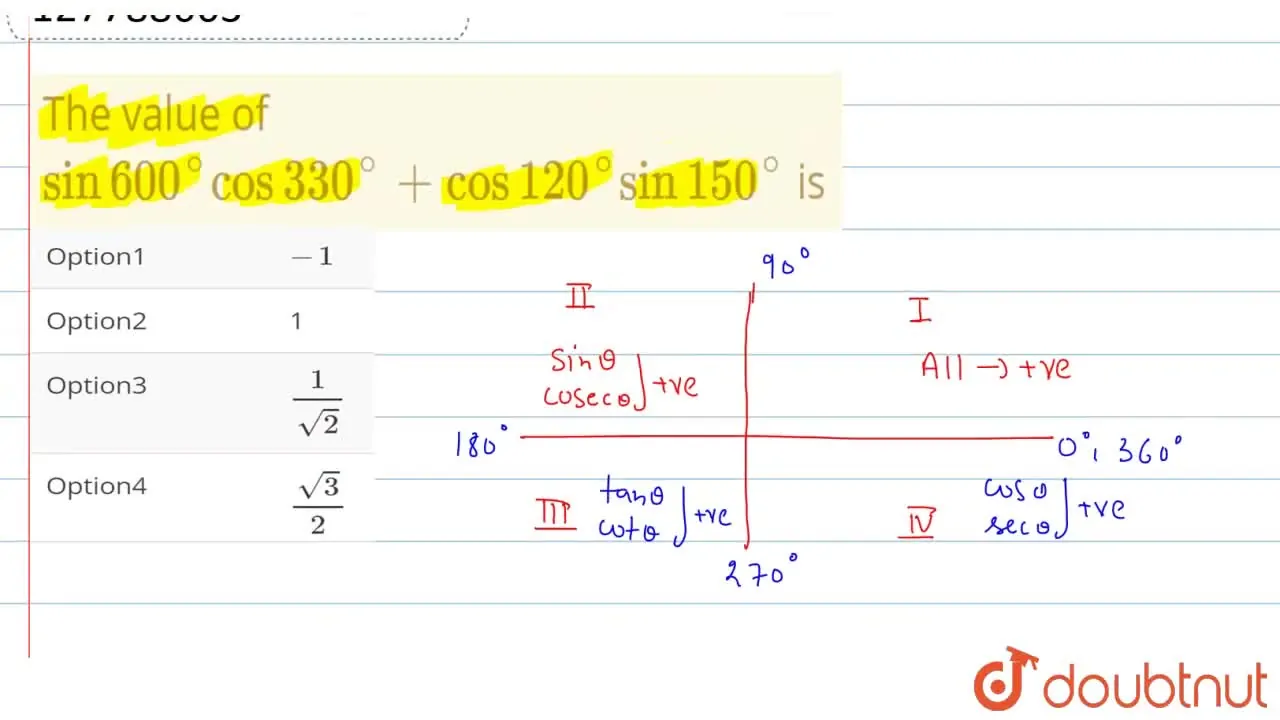 The value of
sin 600° cos 330° + cos 120° sin 150° is
Option1 −1
Option2 1
Option3 1/√2
Option4 √3/2
90°
II
I
sinθ
cosecθ ] +ve
All → +ve
180°
0°, 360°
III
tanθ
cotθ ] +ve
IV
cosθ
secθ ] +ve
270°
doubtnut